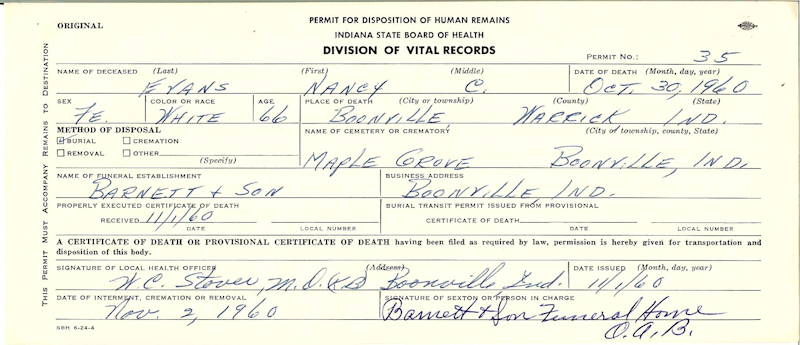 ORIGINAL
PERMIT FOR DISPOSITION OF HUMAN REMAINS
INDIANA STATE BOARD OF HEALTH
DIVISION OF VITAL RECORDS
PERMIT NO.: 35
THIS PERMIT MUST ACCOMPANY REMAINS TO DESTINATION
NAME OF DECEASED (Last) (First) (Middle) DATE OF DEATH (Month, day, year)
EVANS NANCY C. OCT. 30, 1960
SEX COLOR OR RACE AGE PLACE OF DEATH (City or township) (County) (State)
FE. WHITE 66 BOONVILLE, WARRICK IND.
METHOD OF DISPOSAL NAME OF CEMETERY OR CREMATORY (City of township, county, State)
BURIAL CREMATION
REMOVAL OTHER
(Specify)
MAPLE GROVE BOONVILLE, IND.
NAME OF FUNERAL ESTABLISHMENT BUSINESS ADDRESS
BARNETT + SON BOONVILLE, IND.
PROPERLY EXECUTED CERTIFICATE OF DEATH BURIAL TRANSIT PERMIT ISSUED FROM PROVISIONAL
RECEIVED 11/1/60 CERTIFICATE OF DEATH
DATE LOCAL NUMBER DATE LOCAL NUMBER
A CERTIFICATE OF DEATH OR PROVISIONAL CERTIFICATE OF DEATH having been filed as required by law, permission is hereby given for transportation and
disposition of this body.
SIGNATURE OF LOCAL HEALTH OFFICER (Address) DATE ISSUED (Month, day, year)
W.C. Stover, M.D. Boonville Ind. 11/1/60
DATE OF INTERMENT, CREMATION OR REMOVAL SIGNATURE OF SEXTON OR PERSON IN CHARGE
Nov. 2, 1960 Barnett & Son Funeral Home
O.A.B.
SBH 6-24-4